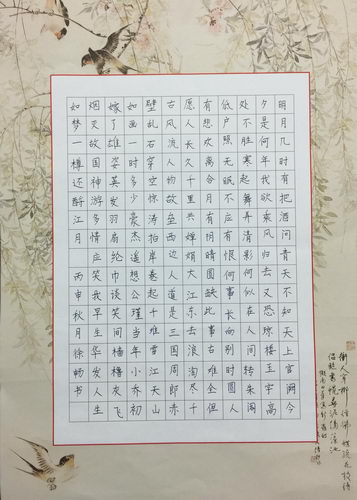 明月几时有把酒问青天不知天上宫阙今
夕是何年我欲乘风归去又恐琼楼玉宇高
处不胜寒起舞弄清影何似在人间转朱阁
低户照无眠不应有恨何事长向别时圆人
有悲欢离合月有阴晴圆缺此事古难全但
愿人长久千里共婵娟大江东去浪淘尽千
古风流人物故垒西边人道是三国周郎赤
壁乱石穿空惊涛拍岸卷起千堆雪江天山
如画一时多少豪杰遥想公瑾当年小乔初
嫁了雄姿英发羽扇纶巾谈笑间樯橹灰飞
烟灭故国神游多情应笑我早生华发人生
如梦一樽还酹江月 丙申秋月徐畅书